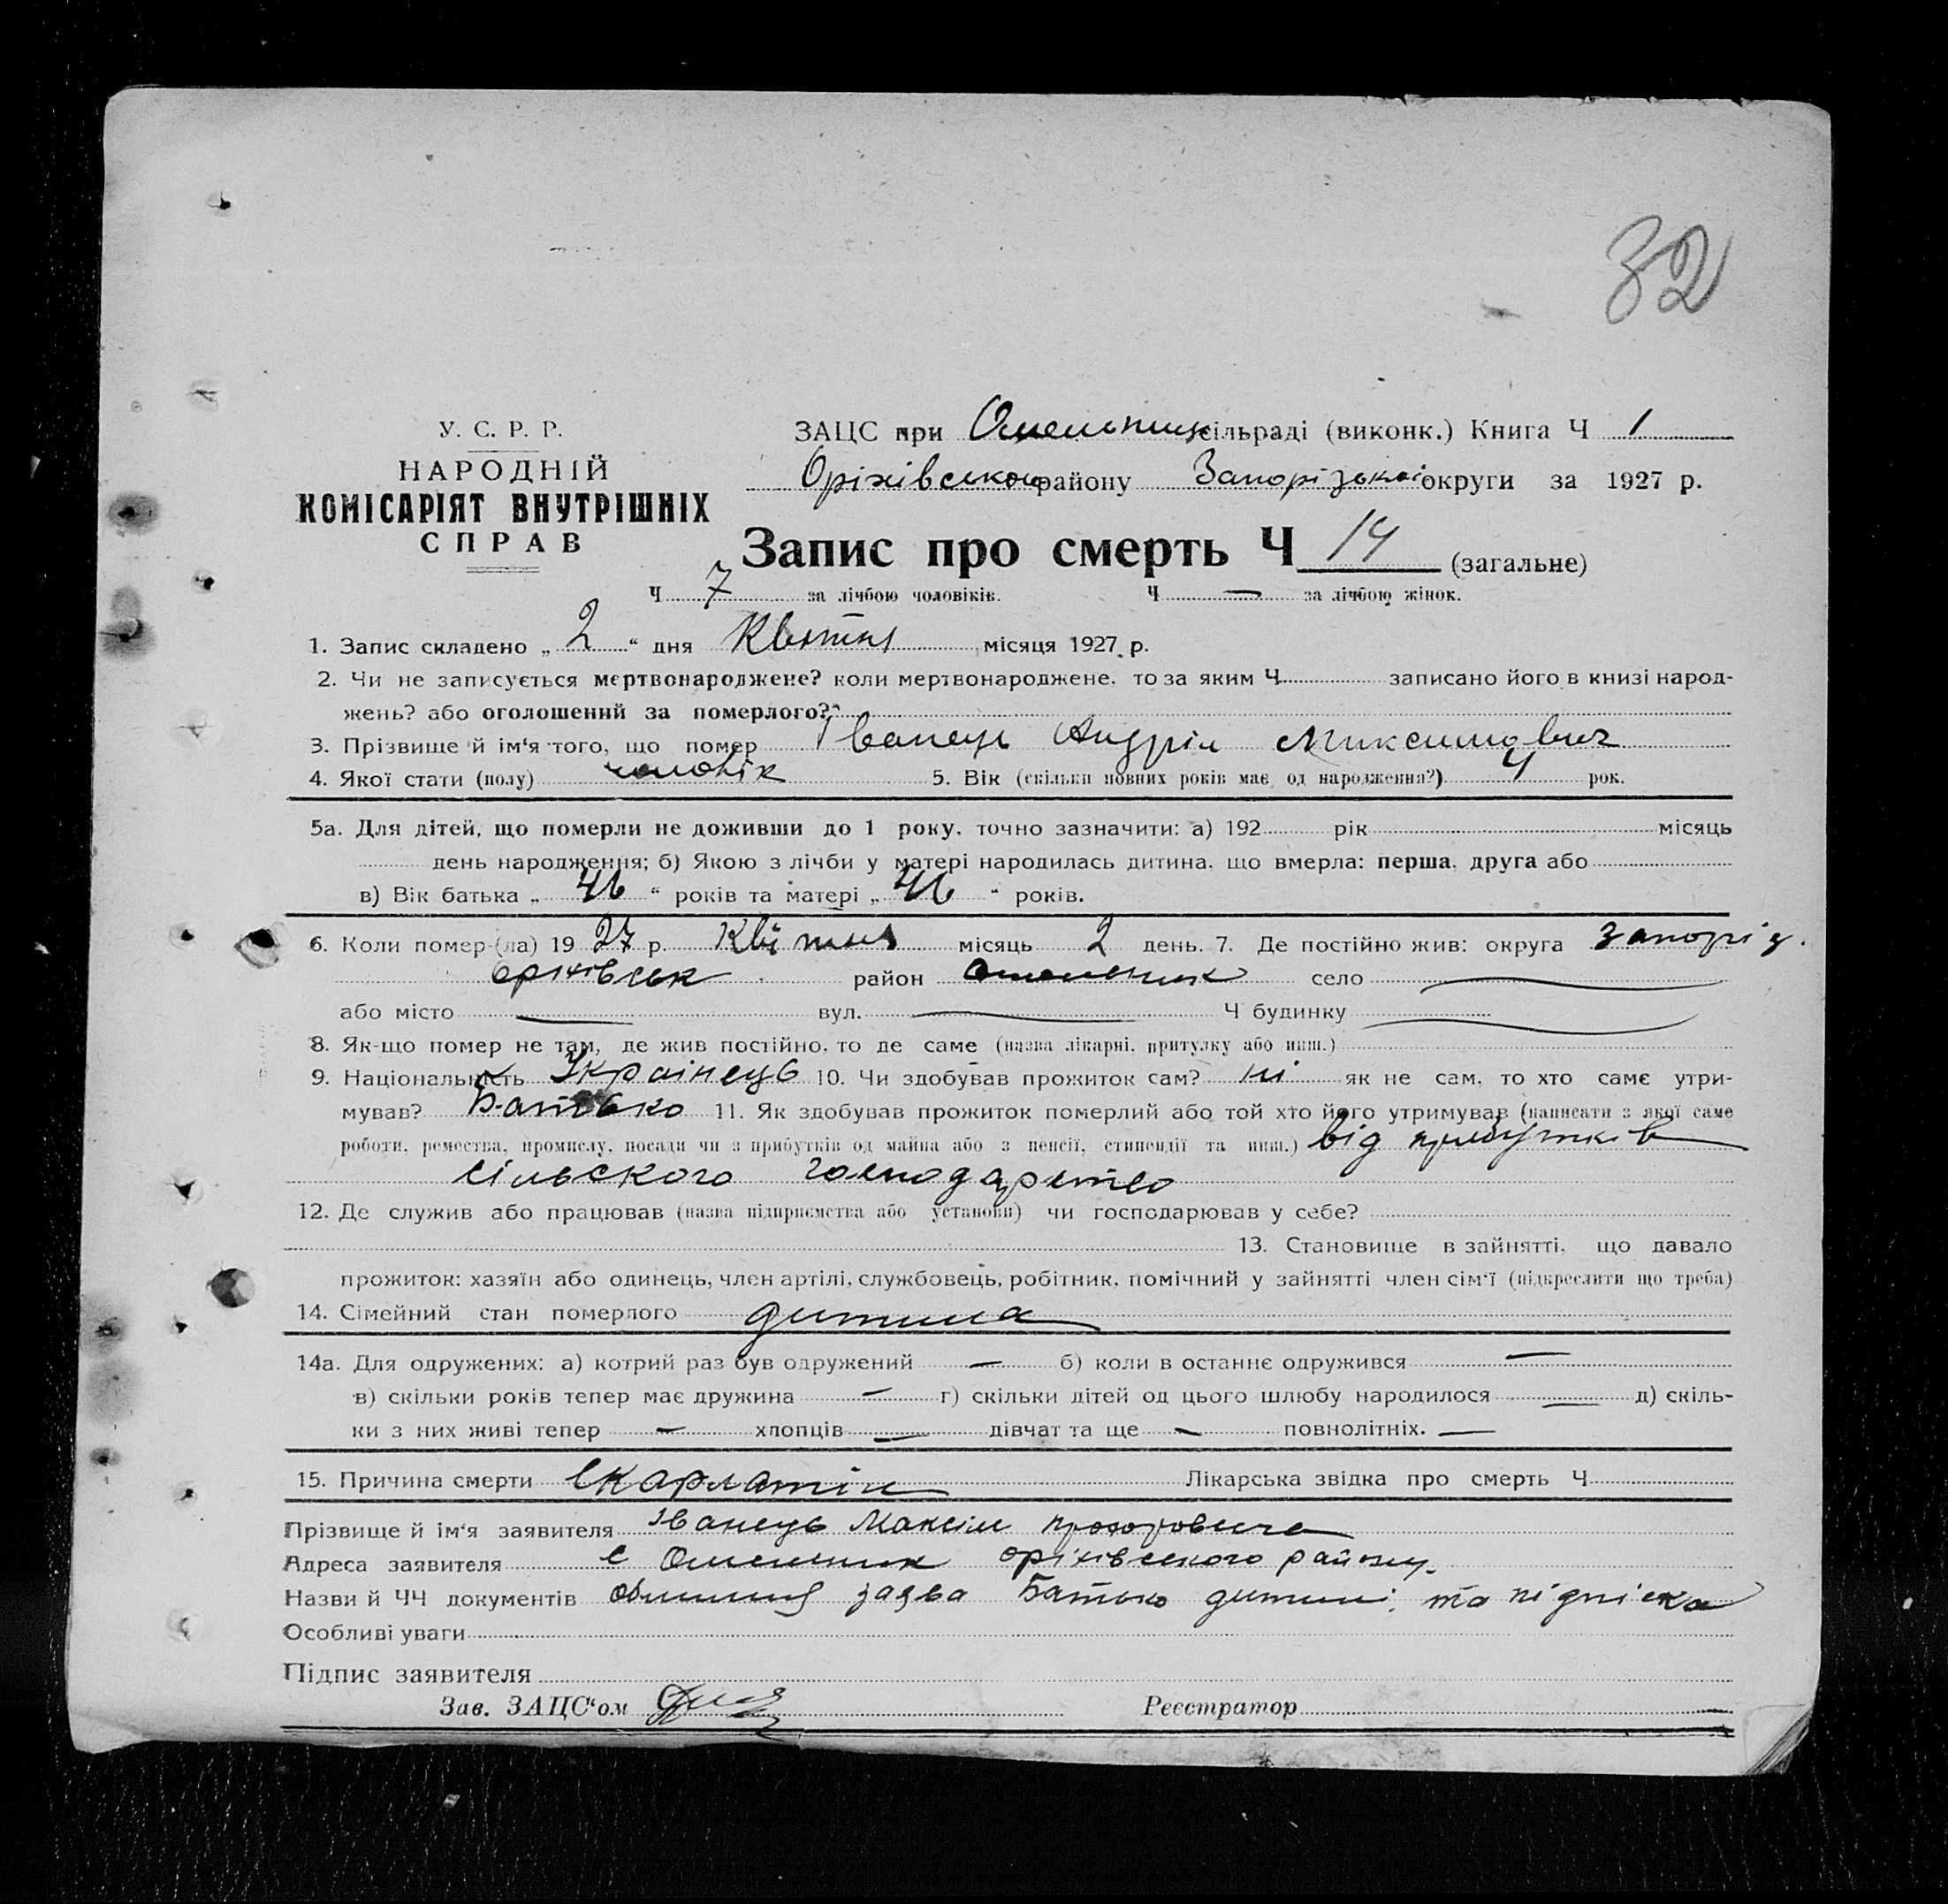 32
У. С. Р. Р.
НАРОДНІЙ
КОМІСАРІЯТ ВНУТРІШНІХ
СПРАВ
ЗАЦС при Омельник сільраді (виконк.) Книга Ч 1
Оріхівського району Запорізької округи за 1927 р.
Запис про смерть Ч 14 (загальне)
Ч 7 за лічбою чоловіків. Ч — за лічбою жінок.
1. Запис складено „ 2 “ дня Квітня місяця 1927 р.
2. Чи не записується мертвонароджене? коли мертвонароджене, то за яким Ч записано його в книзі народ-
жень? або оголошений за померлого?
3. Прізвище й ім‘я того, що помер Іванець Андрій Максимович
4. Якої стати (полу) чоловік 5. Вік (скільки повних років має од народження?) 4 рок.
5а. Для дітей, що померли не доживши до 1 року, точно зазначити: а) 192 рік місяць
день народження; б) Якою з лічби у матері народилась дитина, що вмерла: перша, друга або
в) Вік батька „ 46 “ років та матері „ 46 “ років.
6. Коли помер-(ла) 1927 р. Квітня місяць 2 день. 7. Де постійно жив: округа Запоріз.
Оріхівськ район Омельник село —
або місто — вул. — Ч будинку —
8. Як-що помер не там, де жив постійно, то де саме (назва лікарні, притулку або инш.)
9. Національність Українець 10. Чи здобував прожиток сам? ні як не сам, то хто саме утри-
мував? Батько 11. Як здобував прожиток померлий або той хто його утримував (написати з якої саме
роботи, ремества, промислу, посади чи з прибутків од майна або з пенсії, стипендії та инш.) від прибутків
сільского господарство
12. Де служив або працював (назва підприємства або установи) чи господарював у себе?
13. Становище в зайнятті, що давало
прожиток: хазяїн або одинець, член артілі, службовець, робітник, помічний у зайнятті член сім‘ї (підкреслити що треба)
14. Сімейний стан померлого дитина
14а. Для одружених: а) котрий раз був одружений — б) коли в останнє одружився —
в) скільки років тепер має дружина — г) скільки дітей од цього шлюбу народилося — д) скіль-
ки з них живі тепер — хлопців — дівчат та ще — повнолітніх. —
15. Причина смерти Скарлатін Лікарська звідка про смерть Ч
Прізвище й ім‘я заявителя Іванець Максім Прохоровича
Адреса заявителя с Омельник Оріхівского району.
Назви й ЧЧ документів заява Батько дитини, та підпіска
Особливі уваги
Підпис заявителя
Зав. ЗАЦС‘ом Реєстратор